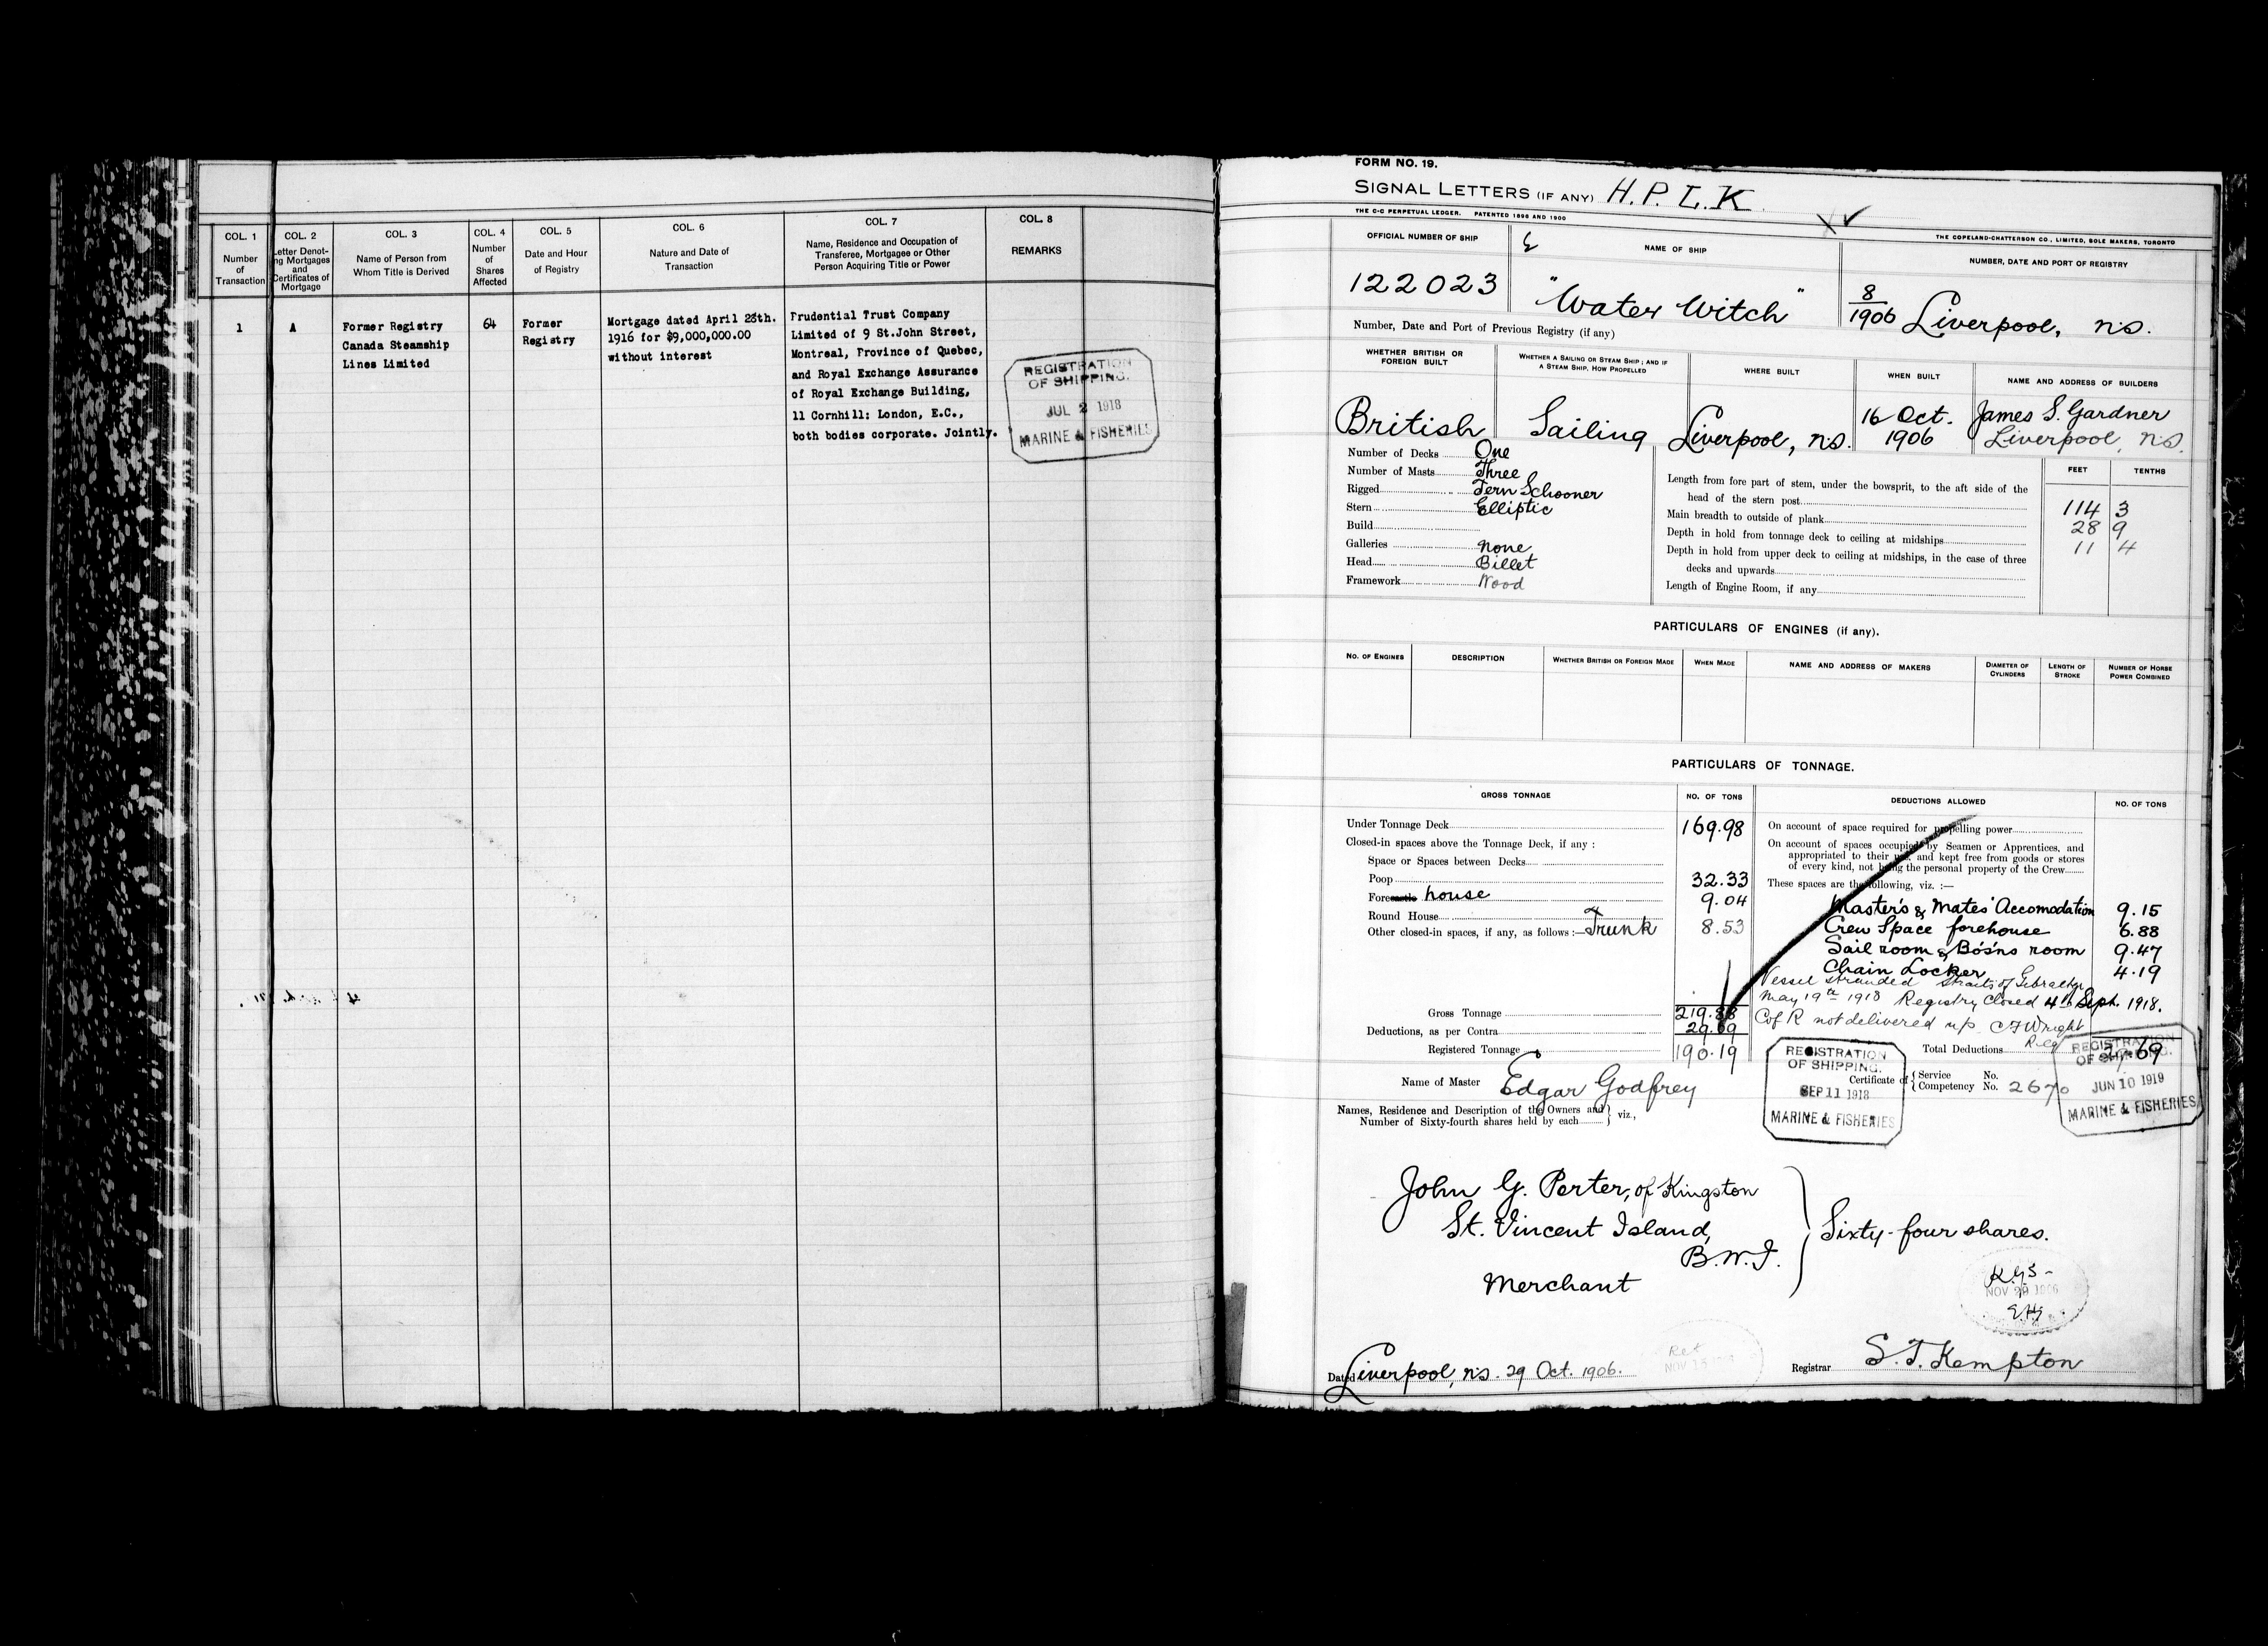 COL. 1
Number
of
Transaction
COL. 2
Letter Denot-
ing Mortgages
and
Certificates of
Mortgage
COL. 3
Name of Person from
Whom Title is Derived
COL. 4
Number
of
Shares
Affected
COL. 5
Date and Hour
of Registry
COL. 6
Nature and Date of
Transaction
COL. 7
Name, Residence and Occupation of
Transferee, Mortgagee or Other
Person Acquiring Title or Power
COL. 8
REMARKS
1
A
Former Registry
Canada Steamship
Lines Limited
64
Former
Registry
Mortgage dated April 28th.
1916 for $9,000,000.00
without interest
Prudential Trust Company
Limited of 9 St.John Street,
Montreal, Province of Quebec,
and Royal Exchange Assurance
of Royal Exchange Building,
11 Cornhill: London, E.C.,
both bodies corporate. Jointly.
REGISTRATION
OF SHIPPING.
JUL 2 1918
MARINE & FISHERIES
FORM NO. 19.
SIGNAL LETTERS (IF ANY) H.P.L.K.
THE C-C PERPETUAL LEDGER. PATENTED 1896 AND 1900
THE COPELAND-CHATTERSON CO., LIMITED, SOLE MAKERS, TORONTO
OFFICIAL NUMBER OF SHIP
122023
NAME OF SHIP
"Water Witch"
NUMBER, DATE AND PORT OF REGISTRY
8
1906 Liverpool, n.s.
Number, Date and Port of Previous Registry (if any)
WHETHER BRITISH OR
FOREIGN BUILT
British
WHETHER A SAILING OR STEAM SHIP; AND IF
A STEAM SHIP, HOW PROPELLED
Sailing
WHERE BUILT
Liverpool, n.s.
WHEN BUILT
16 Oct.
1906
NAME AND ADDRESS OF BUILDERS
James S. Gardner
Liverpool, n.s.
Number of Decks One
Number of Masts Three
Rigged Tern Schooner
Stern Elliptic
Build
Galleries none
Head Billet
Framework Wood
FEET TENTHS
Length from fore part of stem, under the bowsprit, to the aft side of the
head of the stern post 114 3
Main breadth to outside of plank 28 9
Depth in hold from tonnage deck to ceiling at midships 11 4
Depth in hold from upper deck to ceiling at midships, in the case of three
decks and upwards
Length of Engine Room, if any
PARTICULARS OF ENGINES (if any).
NO. OF ENGINES
DESCRIPTION
WHETHER BRITISH OR FOREIGN MADE
WHEN MADE
NAME AND ADDRESS OF MAKERS
DIAMETER OF
CYLINDERS
LENGTH OF
STROKE
NUMBER OF HORSE
POWER COMBINED
PARTICULARS OF TONNAGE.
GROSS TONNAGE
NO. OF TONS
Under Tonnage Deck 169.98
Closed-in spaces above the Tonnage Deck, if any :
Space or Spaces between Decks
Poop 32.33
Forecastle house 9.04
Round House
Other closed-in spaces, if any, as follows :— Trunk 8.53
Gross Tonnage 219.88
Deductions, as per Contra 29.69
Registered Tonnage 190.19
DEDUCTIONS ALLOWED
NO. OF TONS
On account of space required for propelling power
On account of spaces occupied by Seamen or Apprentices, and
appropriated to their use, and kept free from goods or stores
of every kind, not being the personal property of the Crew
These spaces are the following, viz. :—
Master's & Mates' Accomodation 9.15
Crew Space forehouse 6.88
Sail room & Bo's'ns room 9.47
Chain Locker 4.19
Vessel stranded Straits of Gibraltar
May 19th 1918 Registry Closed 4th Sept. 1918.
C of R not delivered up. C F Wright
Reg
Total Deductions 29.69
REGISTRATION
OF SHIPPING.
SEP 11 1918
MARINE & FISHERIES
REGISTRATION
OF SHIPPING.
JUN 10 1919
MARINE & FISHERIES
Name of Master Edgar Godfrey
Certificate of
Service No.
Competency No. 2670
Names, Residence and Description of the Owners and
Number of Sixty-fourth shares held by each
viz.,
John G. Porter, of Kingston
St. Vincent Island,
B.W.I.
Merchant
Sixty-four shares.
NOV 29 1906
NOV 15
Dated Liverpool, n.s. 29 Oct. 1906.
Registrar S. T. Kempton